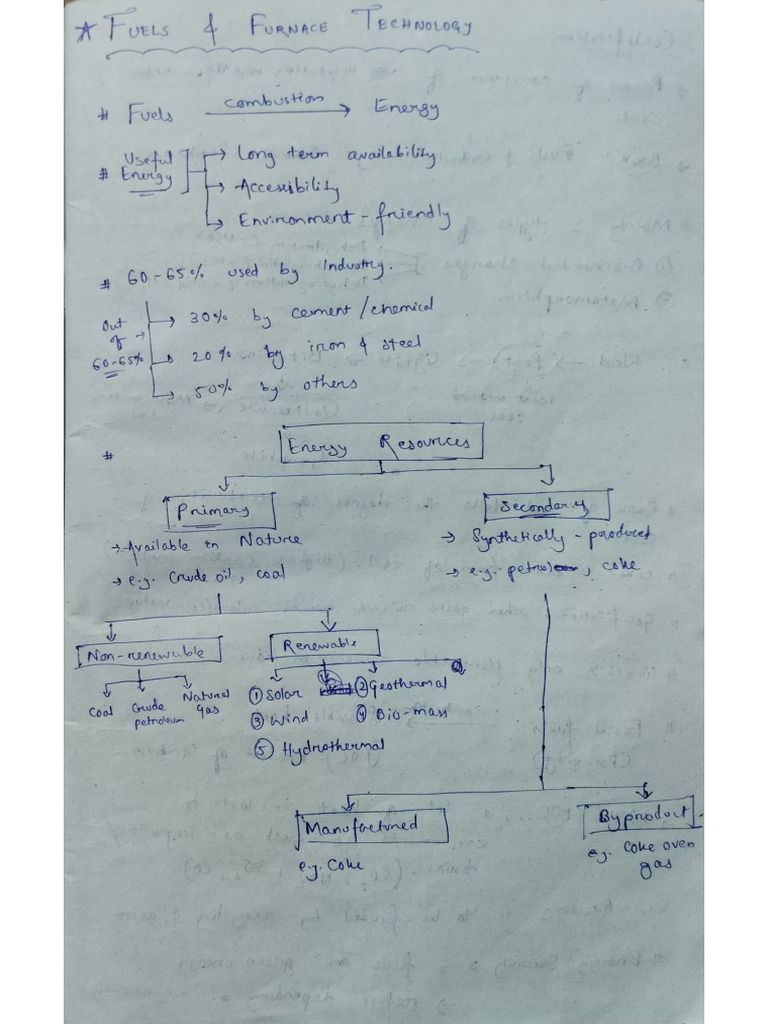 * FUELS & FURNACE TECHNOLOGY
# Fuels combustion → Energy
# Useful Energy → Long term availability
→ Accessibility
→ Environment - friendly
# 60-65% used by Industry.
Out of 60-65% → 30% by cement/chemical
→ 20% by iron & steel
→ 50% by others
# Energy Resources
Primary
→ Available in Nature
→ e.g. Crude oil, coal
Secondary
→ Synthetically - produced
→ e.g. petrol, coke
Non-renewable
Coal
Crude petroleum
Natural Gas
Renewable
① Solar ② Geothermal
③ Wind ④ Bio-mass
⑤ Hydrothermal
Manufactured
e.g. Coke
Byproduct
eg. Coke oven gas